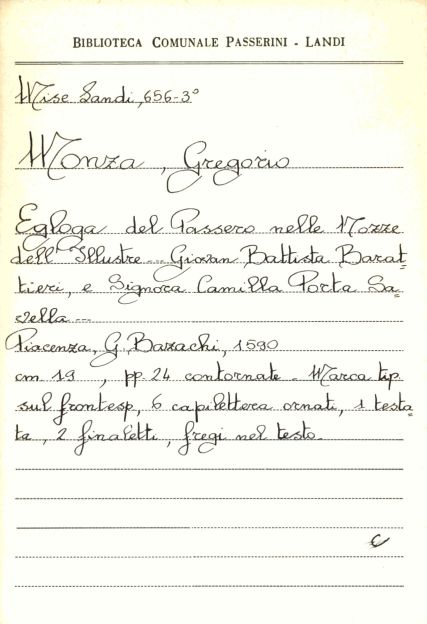 BIBLIOTECA COMUNALE PASSERINI - LANDI
Misc. Landi, 656-3°
Monza, Gregorio
Egloga del Passero nelle Nozze
dell'Illustre ... Giovan Battista Barat=
tieri, e Signora Camilla Porta Sa=
vella ...
Piacenza, G. Bazachi, 1590
cm 19, pp. 24 contornate - Marca tip.
sul frontesp., 6 capilettera ornati, 1 testa=
ta, 2 finaletti, fregi nel testo.
C